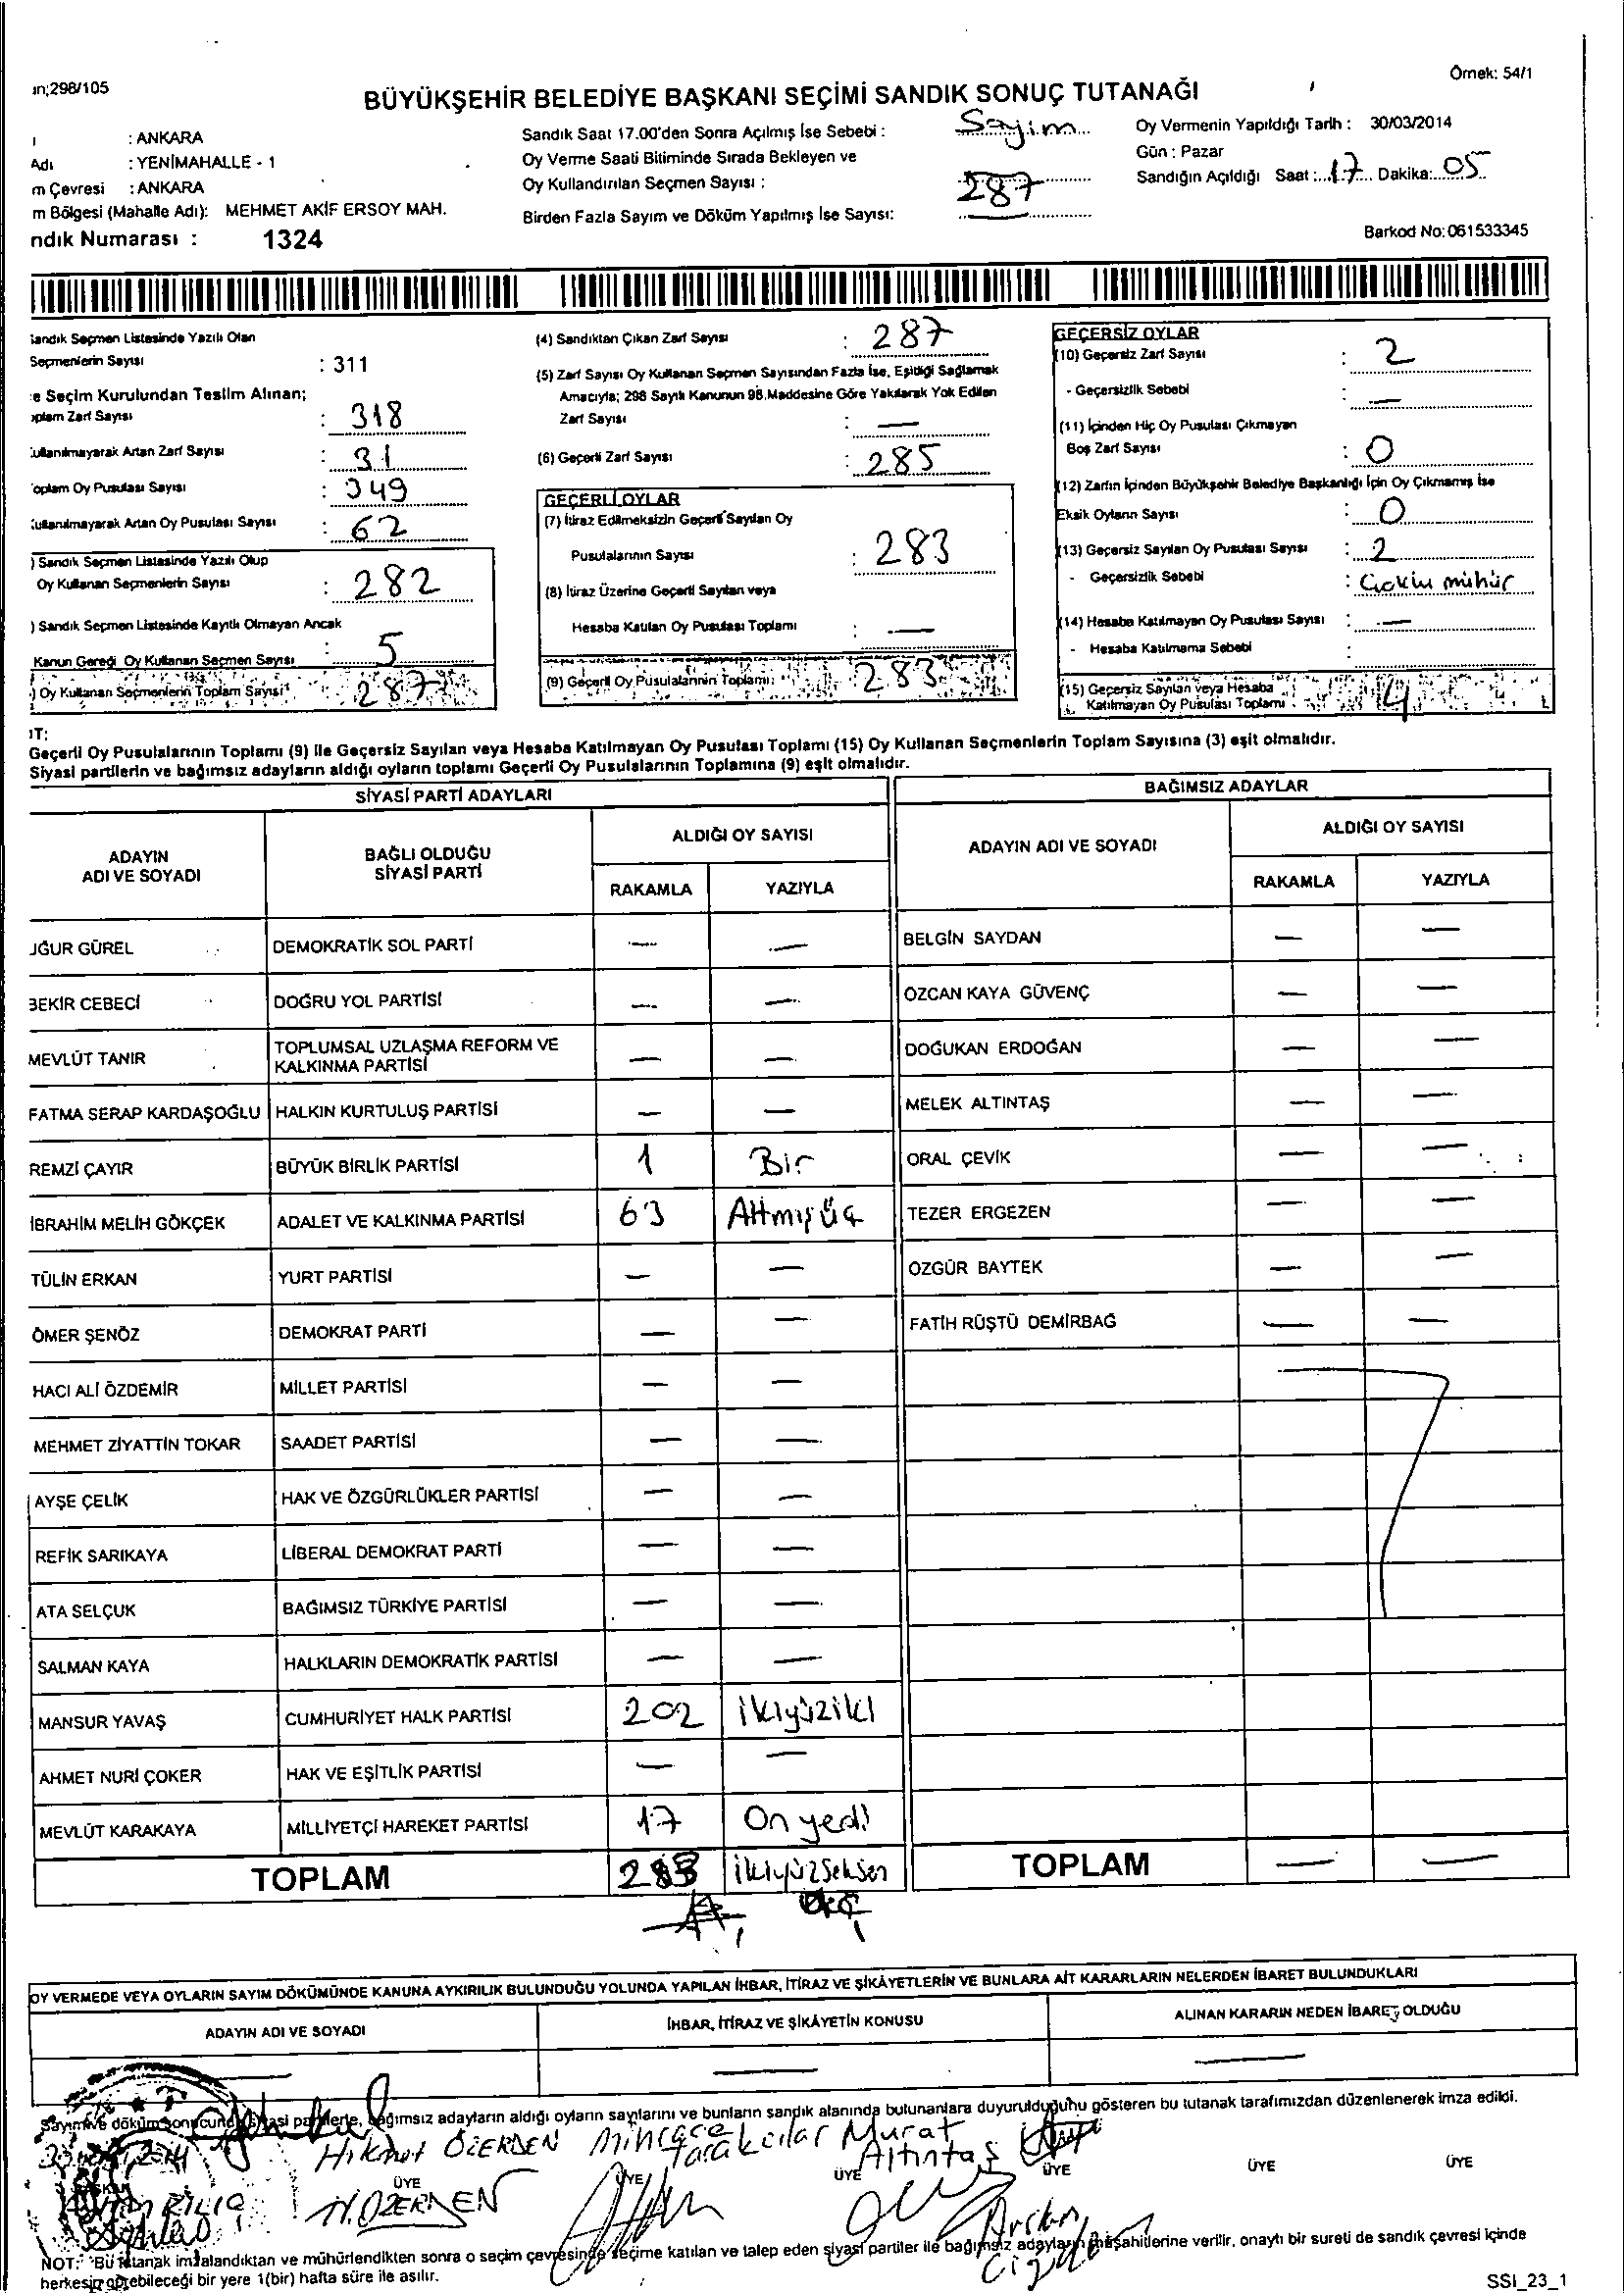 ın;298/105
Örnek: 54/1
BÜYÜKŞEHİR BELEDİYE BAŞKANI SEÇİMİ SANDIK SONUÇ TUTANAĞI
: ANKARA
Adı : YENİMAHALLE - 1
m Çevresi : ANKARA
m Bölgesi (Mahalle Adı): MEHMET AKİF ERSOY MAH.
ndık Numarası : 1324
Sandık Saat 17.00'den Sonra Açılmış İse Sebebi : Sayim
Oy Verme Saati Bitiminde Sırada Bekleyen ve
Oy Kullandırılan Seçmen Sayısı : 287
Birden Fazla Sayım ve Döküm Yapılmış İse Sayısı: —
Oy Vermenin Yapıldığı Tarih : 30/03/2014
Gün : Pazar
Sandığın Açıldığı Saat : 17 Dakika: 05
Barkod No: 061533345
Sandık Seçmen Listesinde Yazılı Olan
Seçmenlerin Sayısı : 311
e Seçim Kurulundan Teslim Alınan;
oplam Zarf Sayısı : 318
Kullanılmayarak Artan Zarf Sayısı : 31
Toplam Oy Pusulası Sayısı : 349
Kullanılmayarak Artan Oy Pusulası Sayısı : 62
) Sandık Seçmen Listesinde Yazılı Olup
Oy Kullanan Seçmenlerin Sayısı : 282
) Sandık Seçmen Listesinde Kayıtlı Olmayan Ancak
Kanun Gereği Oy Kullanan Seçmen Sayısı : 5
) Oy Kullanan Seçmenlerin Toplam Sayısı 287
(4) Sandıktan Çıkan Zarf Sayısı : 287
(5) Zarf Sayısı Oy Kullanan Seçmen Sayısından Fazla İse, Eşitliği Sağlamak
Amacıyla; 298 Sayılı Kanunun 98.Maddesine Göre Yakılarak Yok Edilen
Zarf Sayısı : —
(6) Geçerli Zarf Sayısı : 285
GEÇERLİ OYLAR
(7) İtiraz Edilmeksizin Geçerli Sayılan Oy
Pusulalarının Sayısı : 283
(8) İtiraz Üzerine Geçerli Sayılan veya
Hesaba Katılan Oy Pusulası Toplamı : —
(9) Geçerli Oy Pusulalarının Toplamı 283
GEÇERSİZ OYLAR
(10) Geçersiz Zarf Sayısı : 2
- Geçersizlik Sebebi : —
(11) İçinden Hiç Oy Pusulası Çıkmayan
Boş Zarf Sayısı : 0
(12) Zarfın İçinden Büyükşehir Belediye Başkanlığı İçin Oy Çıkmamış İse
Eksik Oyların Sayısı : 0
(13) Geçersiz Sayılan Oy Pusulası Sayısı : 2
- Geçersizlik Sebebi : mühür
(14) Hesaba Katılmayan Oy Pusulası Sayısı : —
- Hesaba Katılmama Sebebi :
(15) Geçersiz Sayılan veya Hesaba
Katılmayan Oy Pusulası Toplamı 4
IT:
Geçerli Oy Pusulalarının Toplamı (9) ile Geçersiz Sayılan veya Hesaba Katılmayan Oy Pusulası Toplamı (15) Oy Kullanan Seçmenlerin Toplam Sayısına (3) eşit olmalıdır.
Siyasi partilerin ve bağımsız adayların aldığı oyların toplamı Geçerli Oy Pusulalarının Toplamına (9) eşit olmalıdır.
SİYASİ PARTİ ADAYLARI
ADAYIN ADI VE SOYADI BAĞLI OLDUĞU SİYASİ PARTİ ALDIĞI OY SAYISI
RAKAMLA YAZIYLA
UĞUR GÜREL DEMOKRATİK SOL PARTİ — —
BEKİR CEBECİ DOĞRU YOL PARTİSİ — —
MEVLÜT TANIR TOPLUMSAL UZLAŞMA REFORM VE KALKINMA PARTİSİ — —
FATMA SERAP KARDAŞOĞLU HALKIN KURTULUŞ PARTİSİ — —
REMZİ ÇAYIR BÜYÜK BİRLİK PARTİSİ 1 Bir
İBRAHİM MELİH GÖKÇEK ADALET VE KALKINMA PARTİSİ 63 Altmışüç
TÜLİN ERKAN YURT PARTİSİ — —
ÖMER ŞENÖZ DEMOKRAT PARTİ — —
HACI ALİ ÖZDEMİR MİLLET PARTİSİ — —
MEHMET ZİYATTİN TOKAR SAADET PARTİSİ — —
AYŞE ÇELİK HAK VE ÖZGÜRLÜKLER PARTİSİ — —
REFİK SARIKAYA LİBERAL DEMOKRAT PARTİ — —
ATA SELÇUK BAĞIMSIZ TÜRKİYE PARTİSİ — —
SALMAN KAYA HALKLARIN DEMOKRATİK PARTİSİ — —
MANSUR YAVAŞ CUMHURİYET HALK PARTİSİ 202 ikiyüziki
AHMET NURİ ÇOKER HAK VE EŞİTLİK PARTİSİ — —
MEVLÜT KARAKAYA MİLLİYETÇİ HAREKET PARTİSİ 17 On yedi
TOPLAM 283 ikiyüzseksen
üç
BAĞIMSIZ ADAYLAR
ADAYIN ADI VE SOYADI ALDIĞI OY SAYISI
RAKAMLA YAZIYLA
BELGİN SAYDAN — —
ÖZCAN KAYA GÜVENÇ — —
DOĞUKAN ERDOĞAN — —
MELEK ALTINTAŞ — —
ORAL ÇEVİK — —
TEZER ERGEZEN — —
ÖZGÜR BAYTEK — —
FATİH RÜŞTÜ DEMİRBAĞ — —
TOPLAM — —
OY VERMEDE VEYA OYLARIN SAYIM DÖKÜMÜNDE KANUNA AYKIRILIK BULUNDUĞU YOLUNDA YAPILAN İHBAR, İTİRAZ VE ŞİKÂYETLERİN VE BUNLARA AİT KARARLARIN NELERDEN İBARET BULUNDUKLARI
ADAYIN ADI VE SOYADI İHBAR, İTİRAZ VE ŞİKÂYETİN KONUSU ALINAN KARARIN NEDEN İBARET OLDUĞU
— — —
Sayım ve döküm sonucunda siyasi partilerle, bağımsız adayların aldığı oyların sayılarını ve bunların sandık alanında bulunanlara duyurulduğunu gösteren bu tutanak tarafımızdan düzenlenerek imza edildi.
Hikmet ÖZERDEN Tarakcılar Murat Altıntaş
ÜYE ÜYE ÜYE ÜYE ÜYE ÜYE
H.ÖZERDEN
NOT: Bu tutanak imzalandıktan ve mühürlendikten sonra o seçim çevresinde seçime katılan ve talep eden siyasi partiler ile bağımsız adayların müşahitlerine verilir, onaylı bir sureti de sandık çevresi içinde
herkesin görebileceği bir yere 1(bir) hafta süre ile asılır.
SSI_23_1